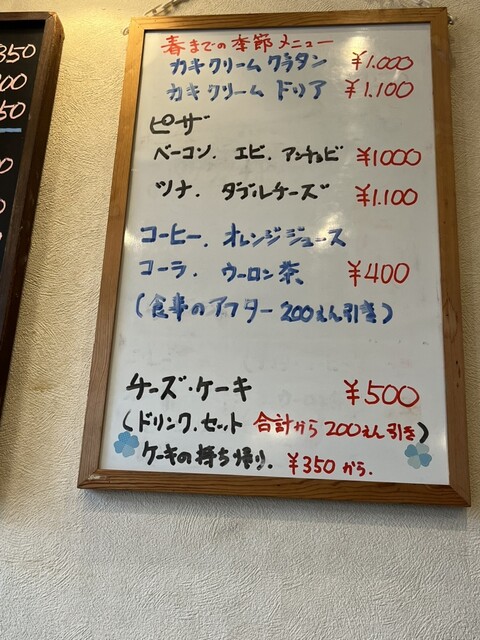 350
00
50
0
0
春までの季節メニュー
カキクリームグラタン ¥1.000
カキクリーム ドリア ¥1.100
ピザ
ベーコン. エビ. アンチョビ ¥1000
ツナ. ダブルチーズ ¥1.100
コーヒー. オレンジジュース
コーラ. ウーロン茶 ¥400
(食事のアフター 200えん引き)
チーズ・ケーキ ¥500
(ドリンク.セット 合計から 200えん引き)
ケーキの持ち帰り. ¥350から.